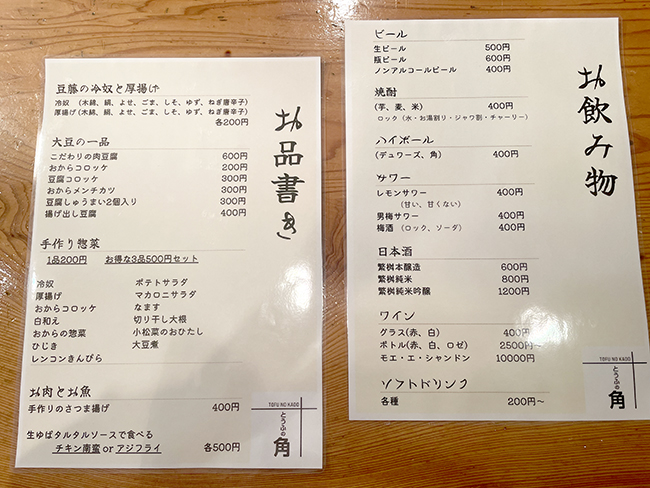 お品書き
豆藤の冷奴と厚揚げ
冷奴 (木綿、絹、よせ、ごま、しそ、ゆず、ねぎ唐辛子)
厚揚げ(木綿、絹、よせ、ごま、しそ、ゆず、ねぎ唐辛子)
各200円
大豆の一品
こだわりの肉豆腐 600円
おからコロッケ 200円
豆腐コロッケ 300円
おからメンチカツ 300円
豆腐しゅうまい2個入り 300円
揚げ出し豆腐 400円
手作り惣菜
1品200円 お得な3品500円セット
冷奴 ポテトサラダ
厚揚げ マカロニサラダ
おからコロッケ なます
白和え 切り干し大根
おからの惣菜 小松菜のおひたし
ひじき 大豆煮
レンコンきんぴら
お肉とお魚
手作りのさつま揚げ 400円
生ゆばタルタルソースで食べる
チキン南蛮 or アジフライ 各500円
TOFU NO KADO
とうふの
角
お飲み物
ビール
生ビール 500円
瓶ビール 600円
ノンアルコールビール 400円
焼酎
(芋、麦、米) 400円
ロック(水・お湯割り・ジャワ割・チャーリー)
ハイボール
(デュワーズ、角) 400円
サワー
レモンサワー 400円
(甘い、甘くない)
男梅サワー 400円
梅酒 (ロック、ソーダ) 400円
日本酒
繁桝本醸造 600円
繁桝純米 800円
繁桝純米吟醸 1200円
ワイン
グラス(赤、白) 400円
ボトル(赤、白、ロゼ) 2500円〜
モエ・エ・シャンドン 10000円
ソフトドリンク
各種 200円〜
TOFU NO KADO
とうふの
角